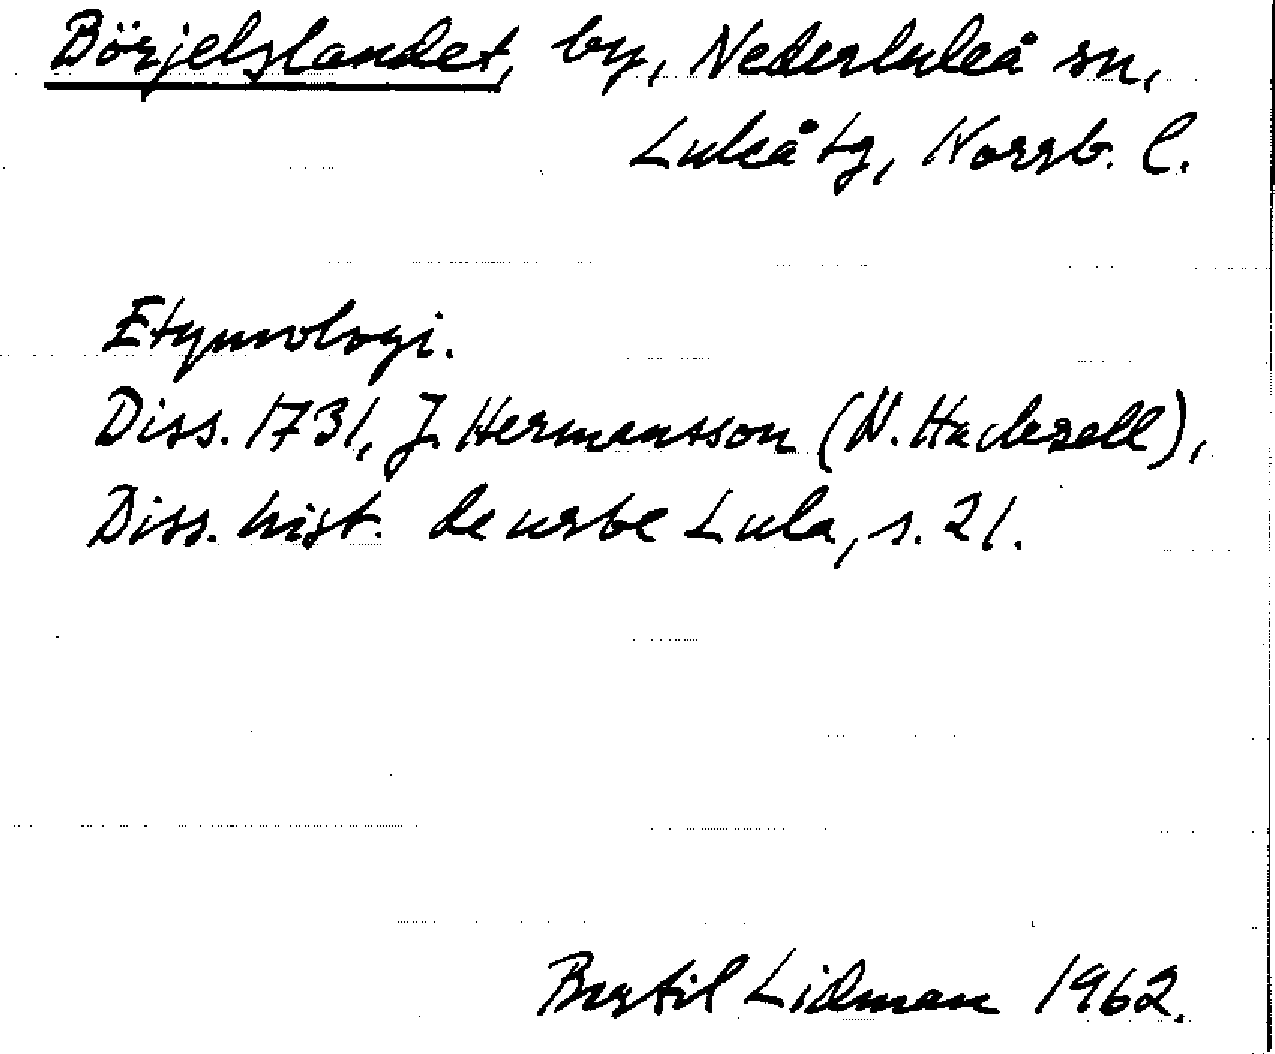 Börjelslandet, by, Nederluleå sn,
Luleå tg, Norrb. l.
Etymologi.
Diss. 1731, J. Hermansson (N. Hackzell),
Diss. hist. de urbe Lula, s. 21.
Bertil Lidman 1962.